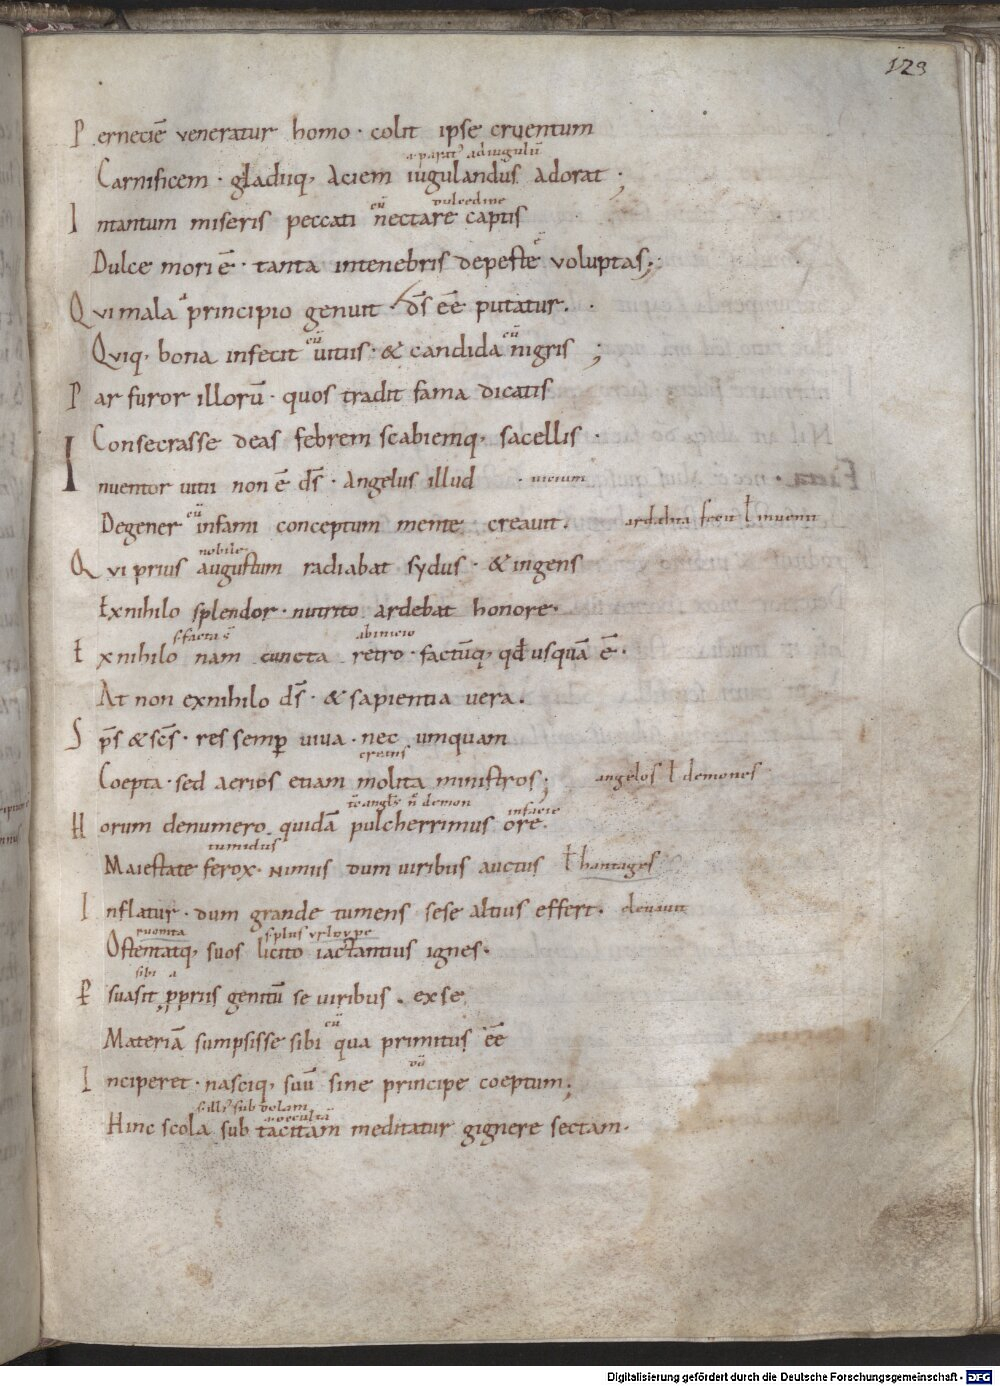 123
P erneciē veneratur homo · colit ipse cruentum
Carnificem · gladiiq, Aciem iugulandus adorat ;
dulcedine
I ntantum miseris peccati nectare captis
Dulce mori ē · tanta intenebris depeste voluptas ;
Q vi mala principio genuit · d̄s ēē putatur .
Qviq, bona infecit uitiis · & candida nigris ;
P ar furor illorū · quos tradit fama dicatis
Consecrasse deas febrem scabiemq, sacellis ·
I nuentor uitii non ē d̄s · Angelus illud
Degener infami conceptum mente creauit .
nobile
Q vi prius augustum radiabat sydus · & ingens
Exnihilo splendor · nutrito ardebat honore ·
abinicio
E xnihilo nam cuncta retro · factūq, qđ usquā ē ·
At non exnihilo d̄s · & sapientia vera .
S p̄s & sc̄s · res semp̄ viva · nec umquam
creans
Coepta · sed aerios etiam molita ministros ; angelos ł demones
infacie
H orum denumero quidā pulcherrimus ore .
tumidus
Maiestate ferox · nimiis dum viribus auctus
I nflatur · dum grande tumens sese altius effert . eleuauit
Ostentatq, suos licito iactantius ignes ·
sibi a
P̱ suasit p̱priis genitū se viribus . exse
cū
Materiā sumpsisse sibi qua primitus ēē
I nciperet · nasciq, suū sine principe coeptum ;
Hinc scola sub tacitam meditatur gignere sectam ·
Digitalisierung gefördert durch die Deutsche Forschungsgemeinschaft - DFG